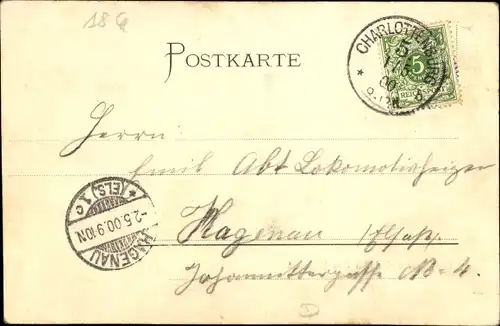 18 G
POSTKARTE
CHARLOTTENBURG
5
1/5
00
8-9N.
5
REICHSPOST
Herrn
Emil Abt Lokomotivheizer
Hagenau i/Elsaß.
Johannittergasse No 4.
HAGENAU
* (ELS.) 1c
-2.5.00.9-10N.
D